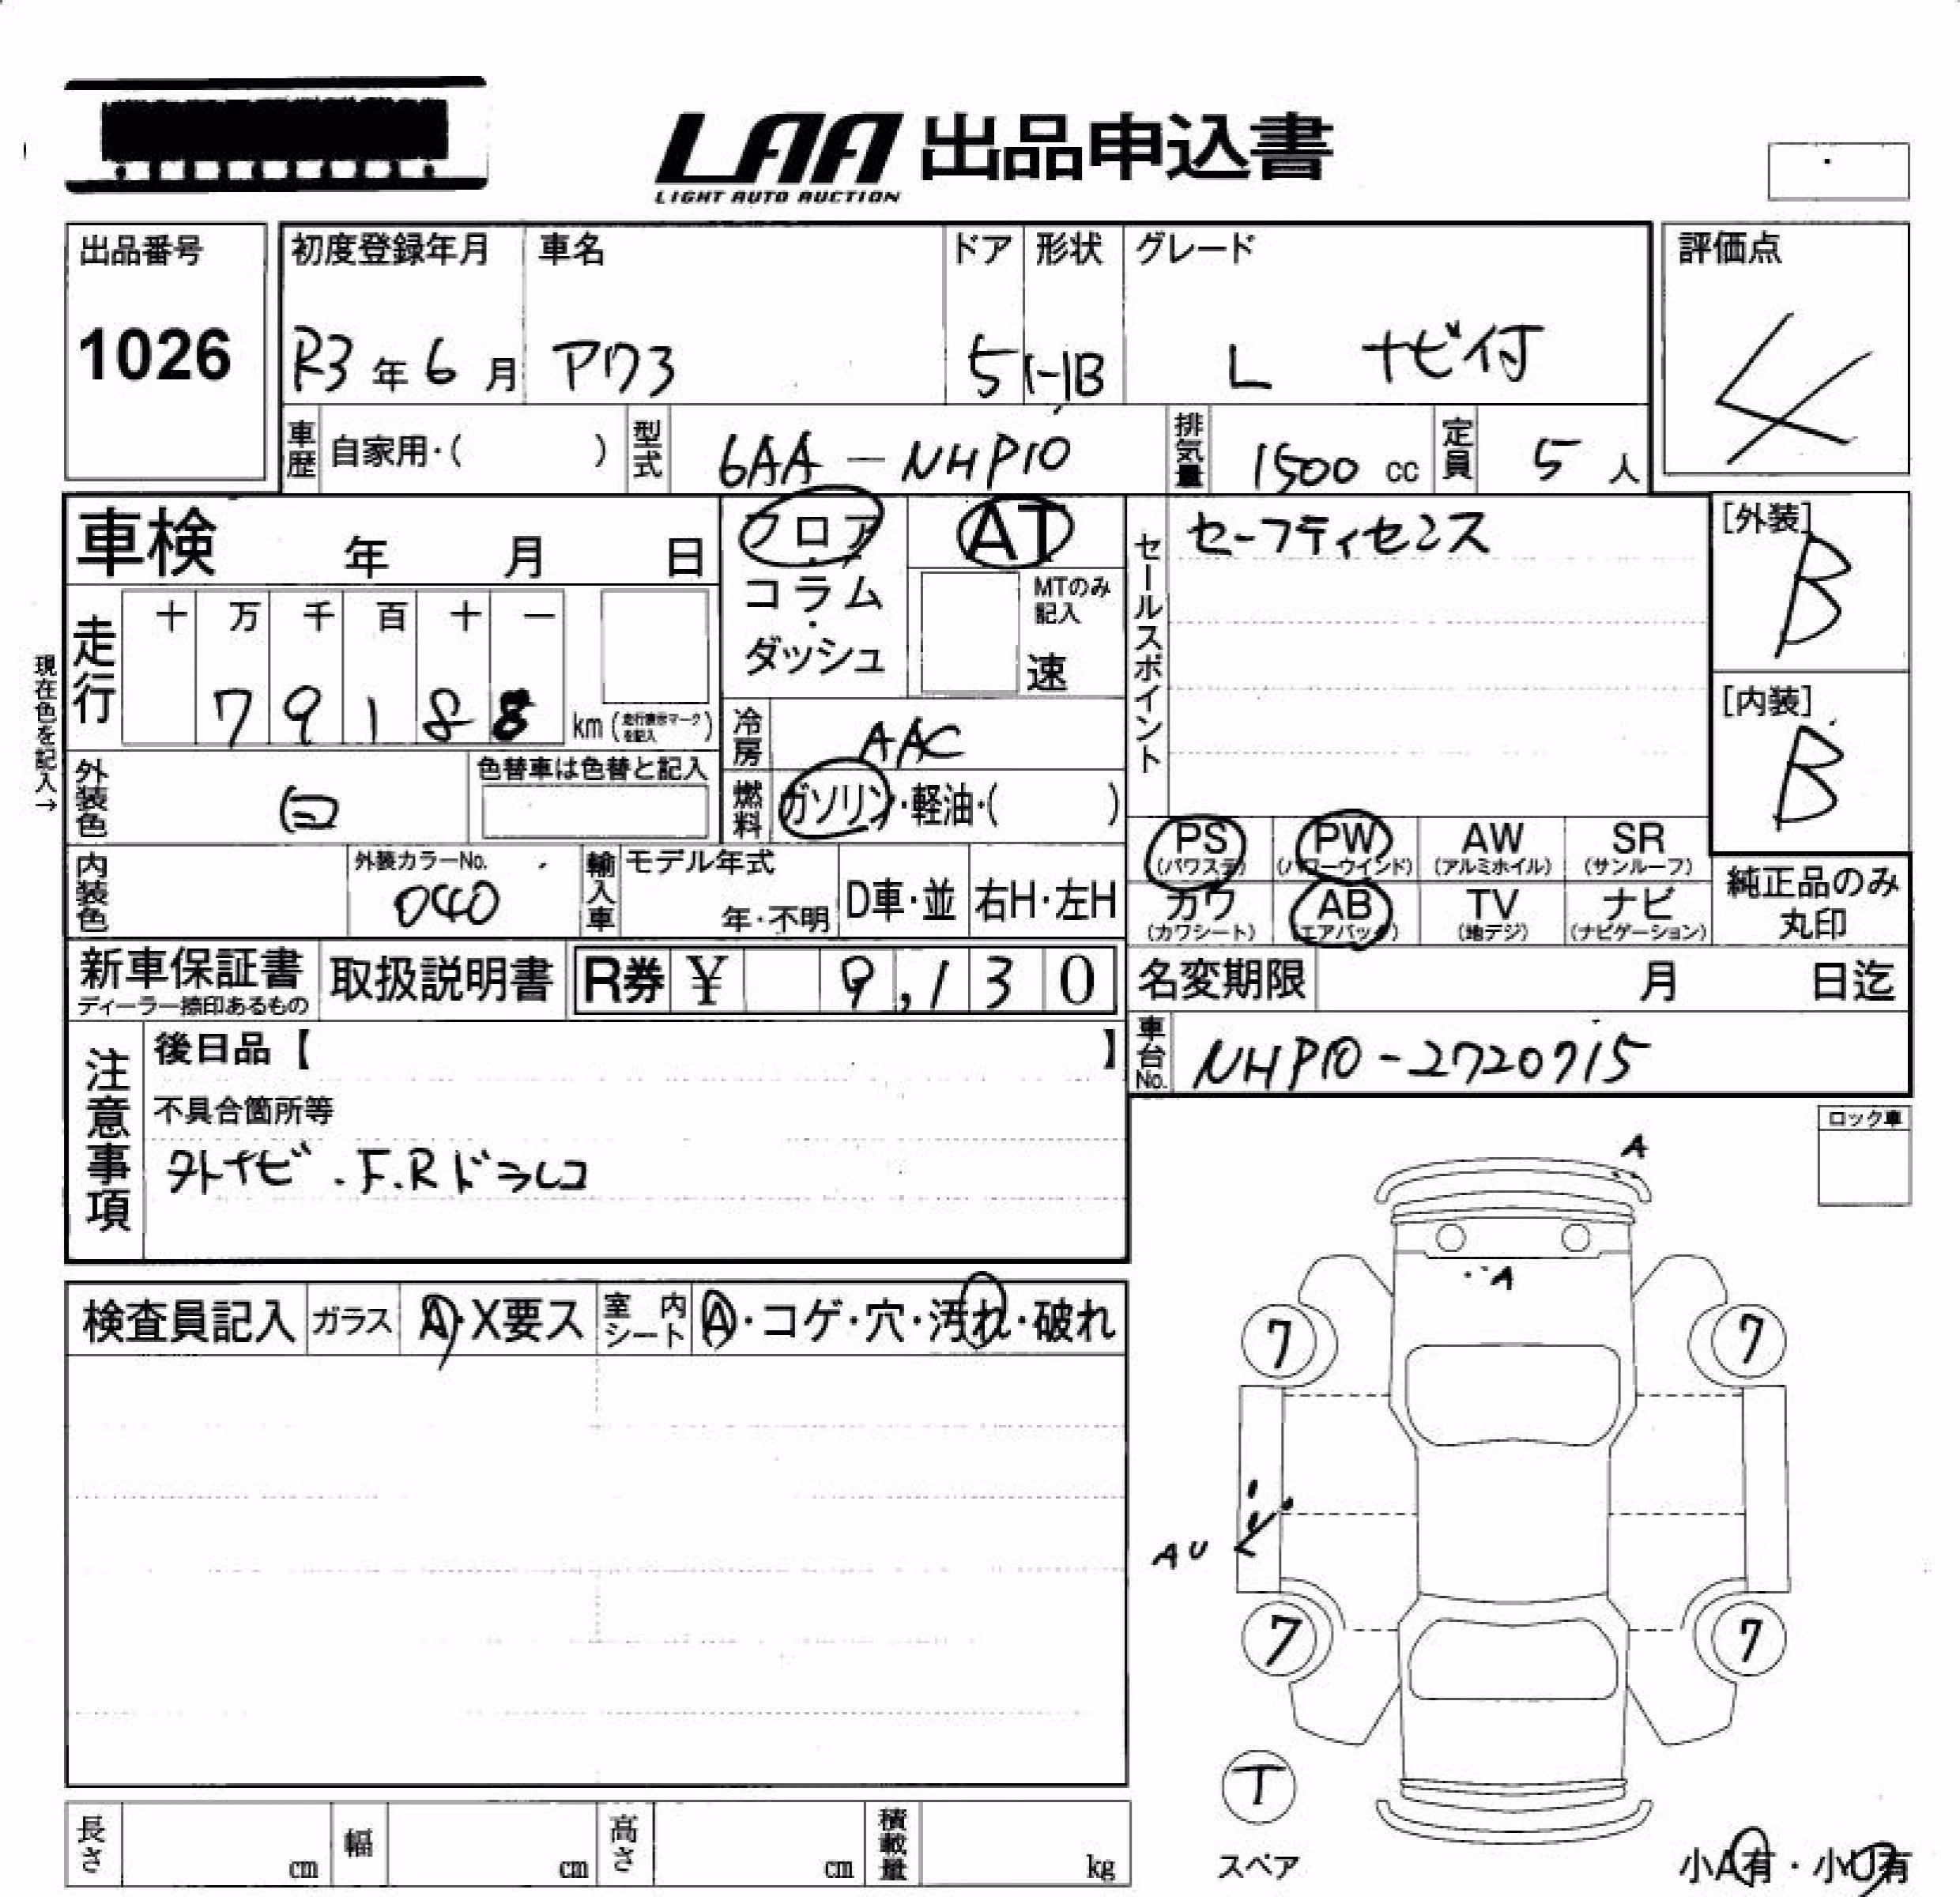 LAA 出品申込書
LIGHT AUTO AUCTION
出品番号
1026
初度登録年月
R3年6月
車名
アクア
ドア
5
形状
HB
グレード
L ナビ付
評価点
4
車歴 自家用・( )
型式 6AA-NHP10
排気量 1500 cc
定員 5 人
車検 年 月 日
フロア・コラム・ダッシュ
AT
MTのみ記入
速
セールスポイント
セーフティセンス
[外装]
B
[内装]
B
現在色を記入→
走行
十 万 千 百 十 一
7 9 1 8 8
km (走行表示マークを記入)
冷房 AAC
燃料 ガソリン・軽油・( )
外装色 白
色替車は色替と記入
内装色
外装カラーNo.
040
輸入車 モデル年式
年・不明
D車・並
右H・左H
PS (パワステ)
PW (パワーウインド)
AW (アルミホイル)
SR (サンルーフ)
カワ (カワシート)
AB (エアバック)
TV (地デジ)
ナビ (ナビゲーション)
純正品のみ丸印
新車保証書
ディーラー捺印あるもの
取扱説明書
R券 ¥ 9,130
名変期限 月 日迄
車台No. NHP10-2720715
注意事項
後日品【 】
不具合箇所等
外ナビ・F.Rドラレコ
ロック車
検査員記入
ガラス A・X要ス
室内シート A・コゲ・穴・汚れ・破れ
A
A
7 7
AU
7 7
T
スペア
長さ cm
幅 cm
高さ cm
積載量 kg
小A有・小U有